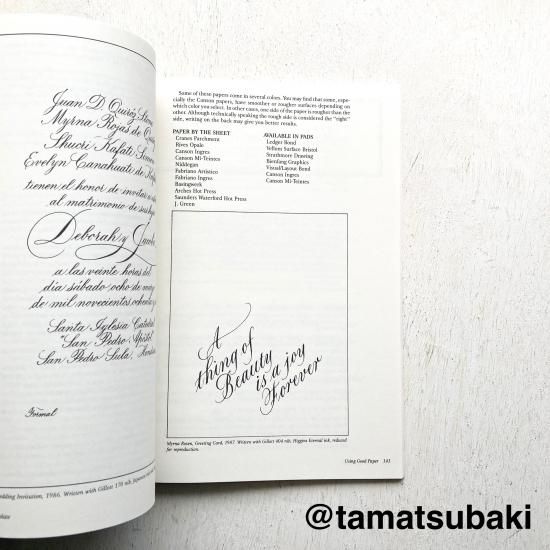 Juan D. Quiróz
Myrna Rojas de
Shucri Kafati
Evelyn Canahuati de
tienen el honor de invitar
al matrimonio de sus
Deborah y
a las veinte horas del
día sábado ocho de
de mil novecientos
Santa Iglesia Catedral
"San Pedro Apóstol"
San Pedro Sula,
Formal
Wedding Invitation, 1986. Written with Gillott 170 nib,
Some of these papers come in several colors. You may find that some, espe-
cially the Canson papers, have smoother or rougher surfaces depending on
which color you select. In other cases, one side of the paper is rougher than the
other. Although technically speaking the rough side is considered the "right"
side, writing on the back may give you better results.
PAPER BY THE SHEET
Cranes Parchment
Rives Opale
Canson Ingres
Canson Mi-Teintes
Niddegan
Fabriano Artistico
Fabriano Ingres
Basingwerk
Arches Hot Press
Saunders Waterford Hot Press
J. Green
AVAILABLE IN PADS
Ledger Bond
Vellum Surface Bristol
Strathmore Drawing
Bienfang Graphics
Visual/Layout Bond
Canson Ingres
Canson Mi-Teintes
A
thing of
Beauty
is a joy
Forever
Myrna Rosen, Greeting Card, 1987. Written with Gillott 404 nib, Higgins Eternal ink, reduced
for reproduction.
Using Good Paper 143
@tamatsubaki